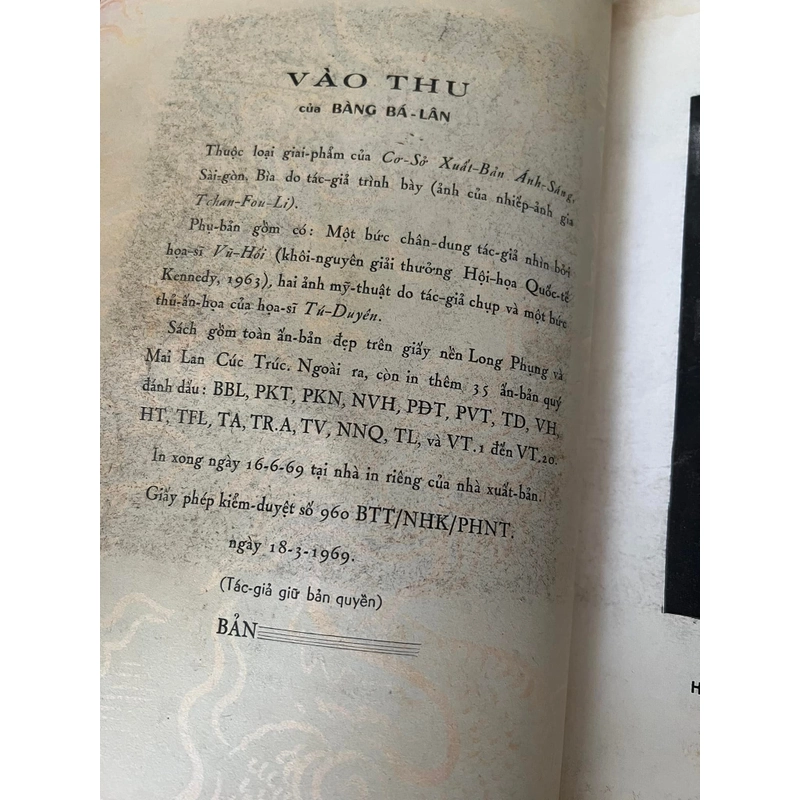 VÀO THU
của BÀNG BÁ-LÂN
Thuộc loại giai-phẩm của Cơ-Sở Xuất-Bản Ánh-Sáng,
Sài-gòn, Bìa do tác-giả trình bày (ảnh của nhiếp-ảnh gia
Tchan-Fou-Li).
Phụ-bản gồm có: Một bức chân-dung tác-giả nhìn bởi
họa-sĩ Vũ-Hối (khôi-nguyên giải thưởng Hội-họa Quốc-tế
Kennedy, 1963), hai ảnh mỹ-thuật do tác-giả chụp và một bức
thủ-ấn-họa của họa-sĩ Tú-Duyên.
Sách gồm toàn ấn-bản đẹp trên giấy nền Long Phụng và
Mai Lan Cúc Trúc. Ngoài ra, còn in thêm 35 ấn-bản quý
đánh dấu: BBL, PKT, PKN, NVH, PĐT, PVT, TD, VH,
HT, TFL, TA, TR.A, TV, NNQ, TL, và VT.1 đến VT.20.
In xong ngày 16-6-69 tại nhà in riêng của nhà xuất-bản.
Giấy phép kiểm-duyệt số 960 BTT/NHK/PHNT.
ngày 18-3-1969.
(Tác-giả giữ bản quyền)
BẢN
H